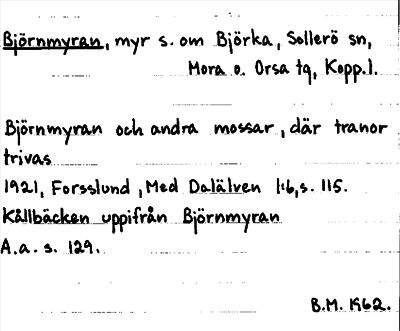 Björnmyran, myr s. om Björka, Sollerö sn,
Mora o. Orsa tg, Kopp.l.
Björnmyran och andra mossar, där tranor
trivas
1921, Forsslund, Med Dalälven 1:6, s. 115.
Kållbäcken uppifrån Björnmyran
A.a. s. 129.
B.M. 1962.